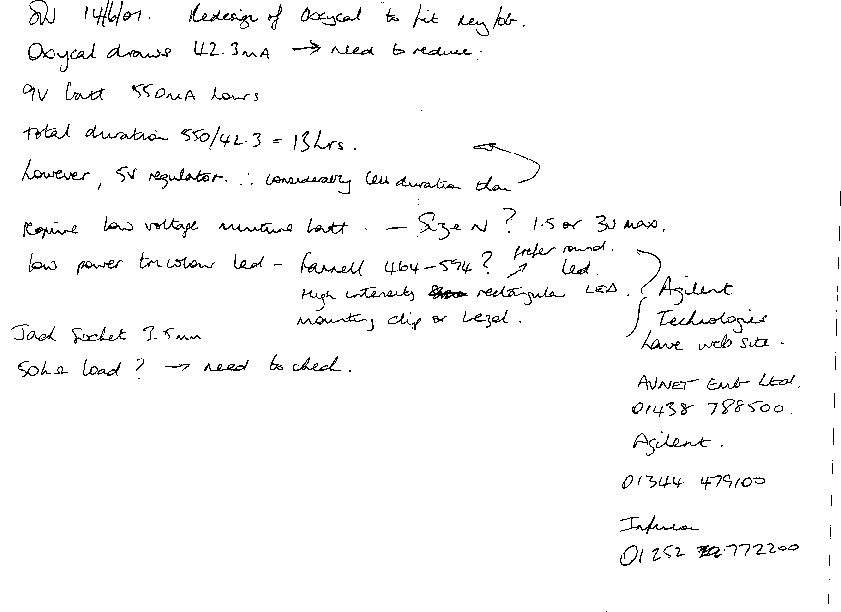 14/6/01. Redesign of Oxycal to fit key fob.
Oxycal draws 42.3mA → need to reduce.
9V batt 550mA hours
Total duration 550/42.3 = 13hrs.
however, 5V regulator ∴ considerably less duration than
Require low voltage miniature batt. — Size N? 1.5 or 3V max.
low power tricolour led - Farnell 464-594? prefer round led.
High intensity rectangular LED.
mounting clip or bezel.
Agilent
Technologies
have web site.
Jack Socket 3.5mm
load? → need to check.
AVNET Ltd.
01438 788500.
Agilent.
01344 479100
01252 772200